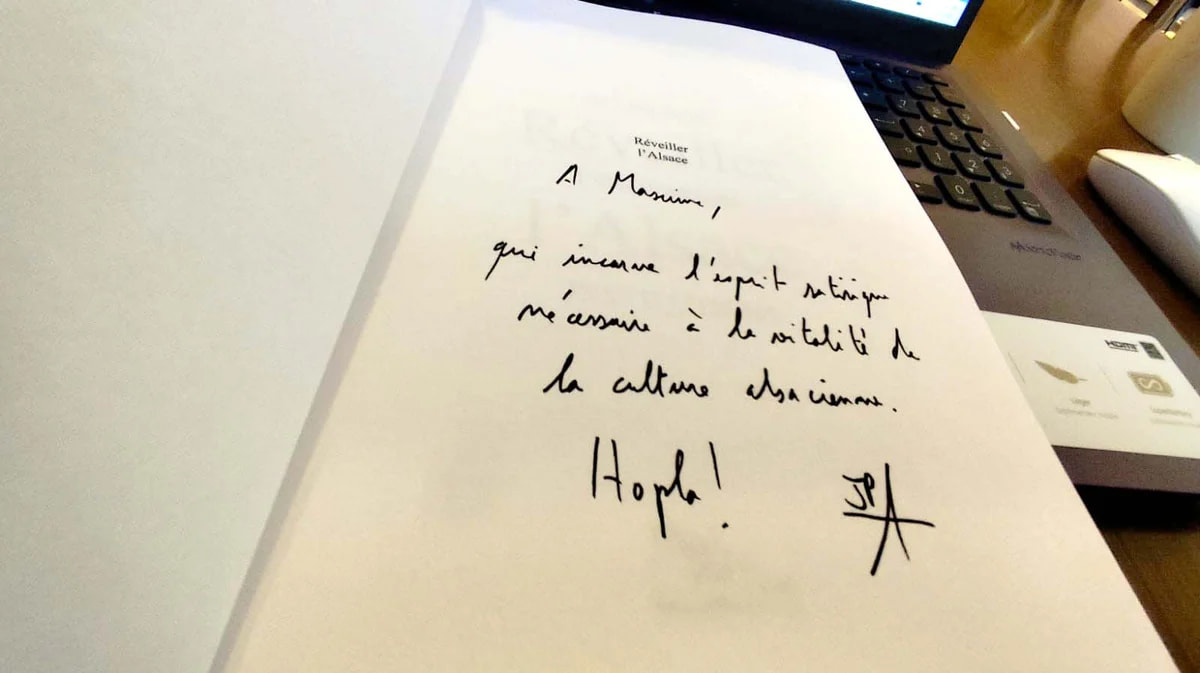 Réveiller
l'Alsace
A Maxime,
qui incarne l'esprit satirique
nécessaire à la vitalité de
la culture alsacienne.
Hopla!
JPA
HDMI
Léger